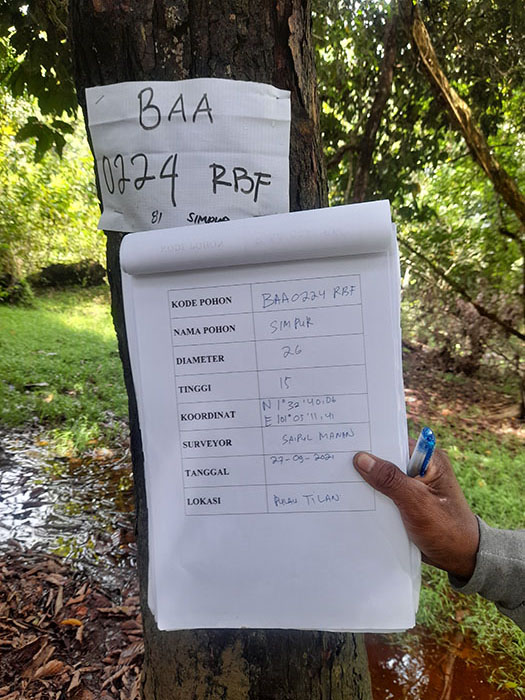 BAA
0224 RBF
81 SIMPUR
KODE POHON BAA0224 RBF
NAMA POHON SIMPUR
DIAMETER 26
TINGGI 15
KOORDINAT N 1°32'40,06
E 101°05'11,41
SURVEYOR SAIPUL MANAN
TANGGAL 27-09-2021
LOKASI PULAU TILAN